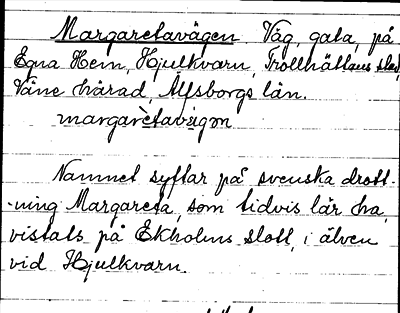 Margaretavägen Väg, gata, på
Egna Hem, Hjulkvarn, Trollhättans stad,
Väne härad, Älfsborgs län.
margarètavägən
Namnet syftar på svenska drott-
-ning Margareta, som tidvis lär ha
vistats på Ekholms slott, i älven
vid Hjulkvarn.